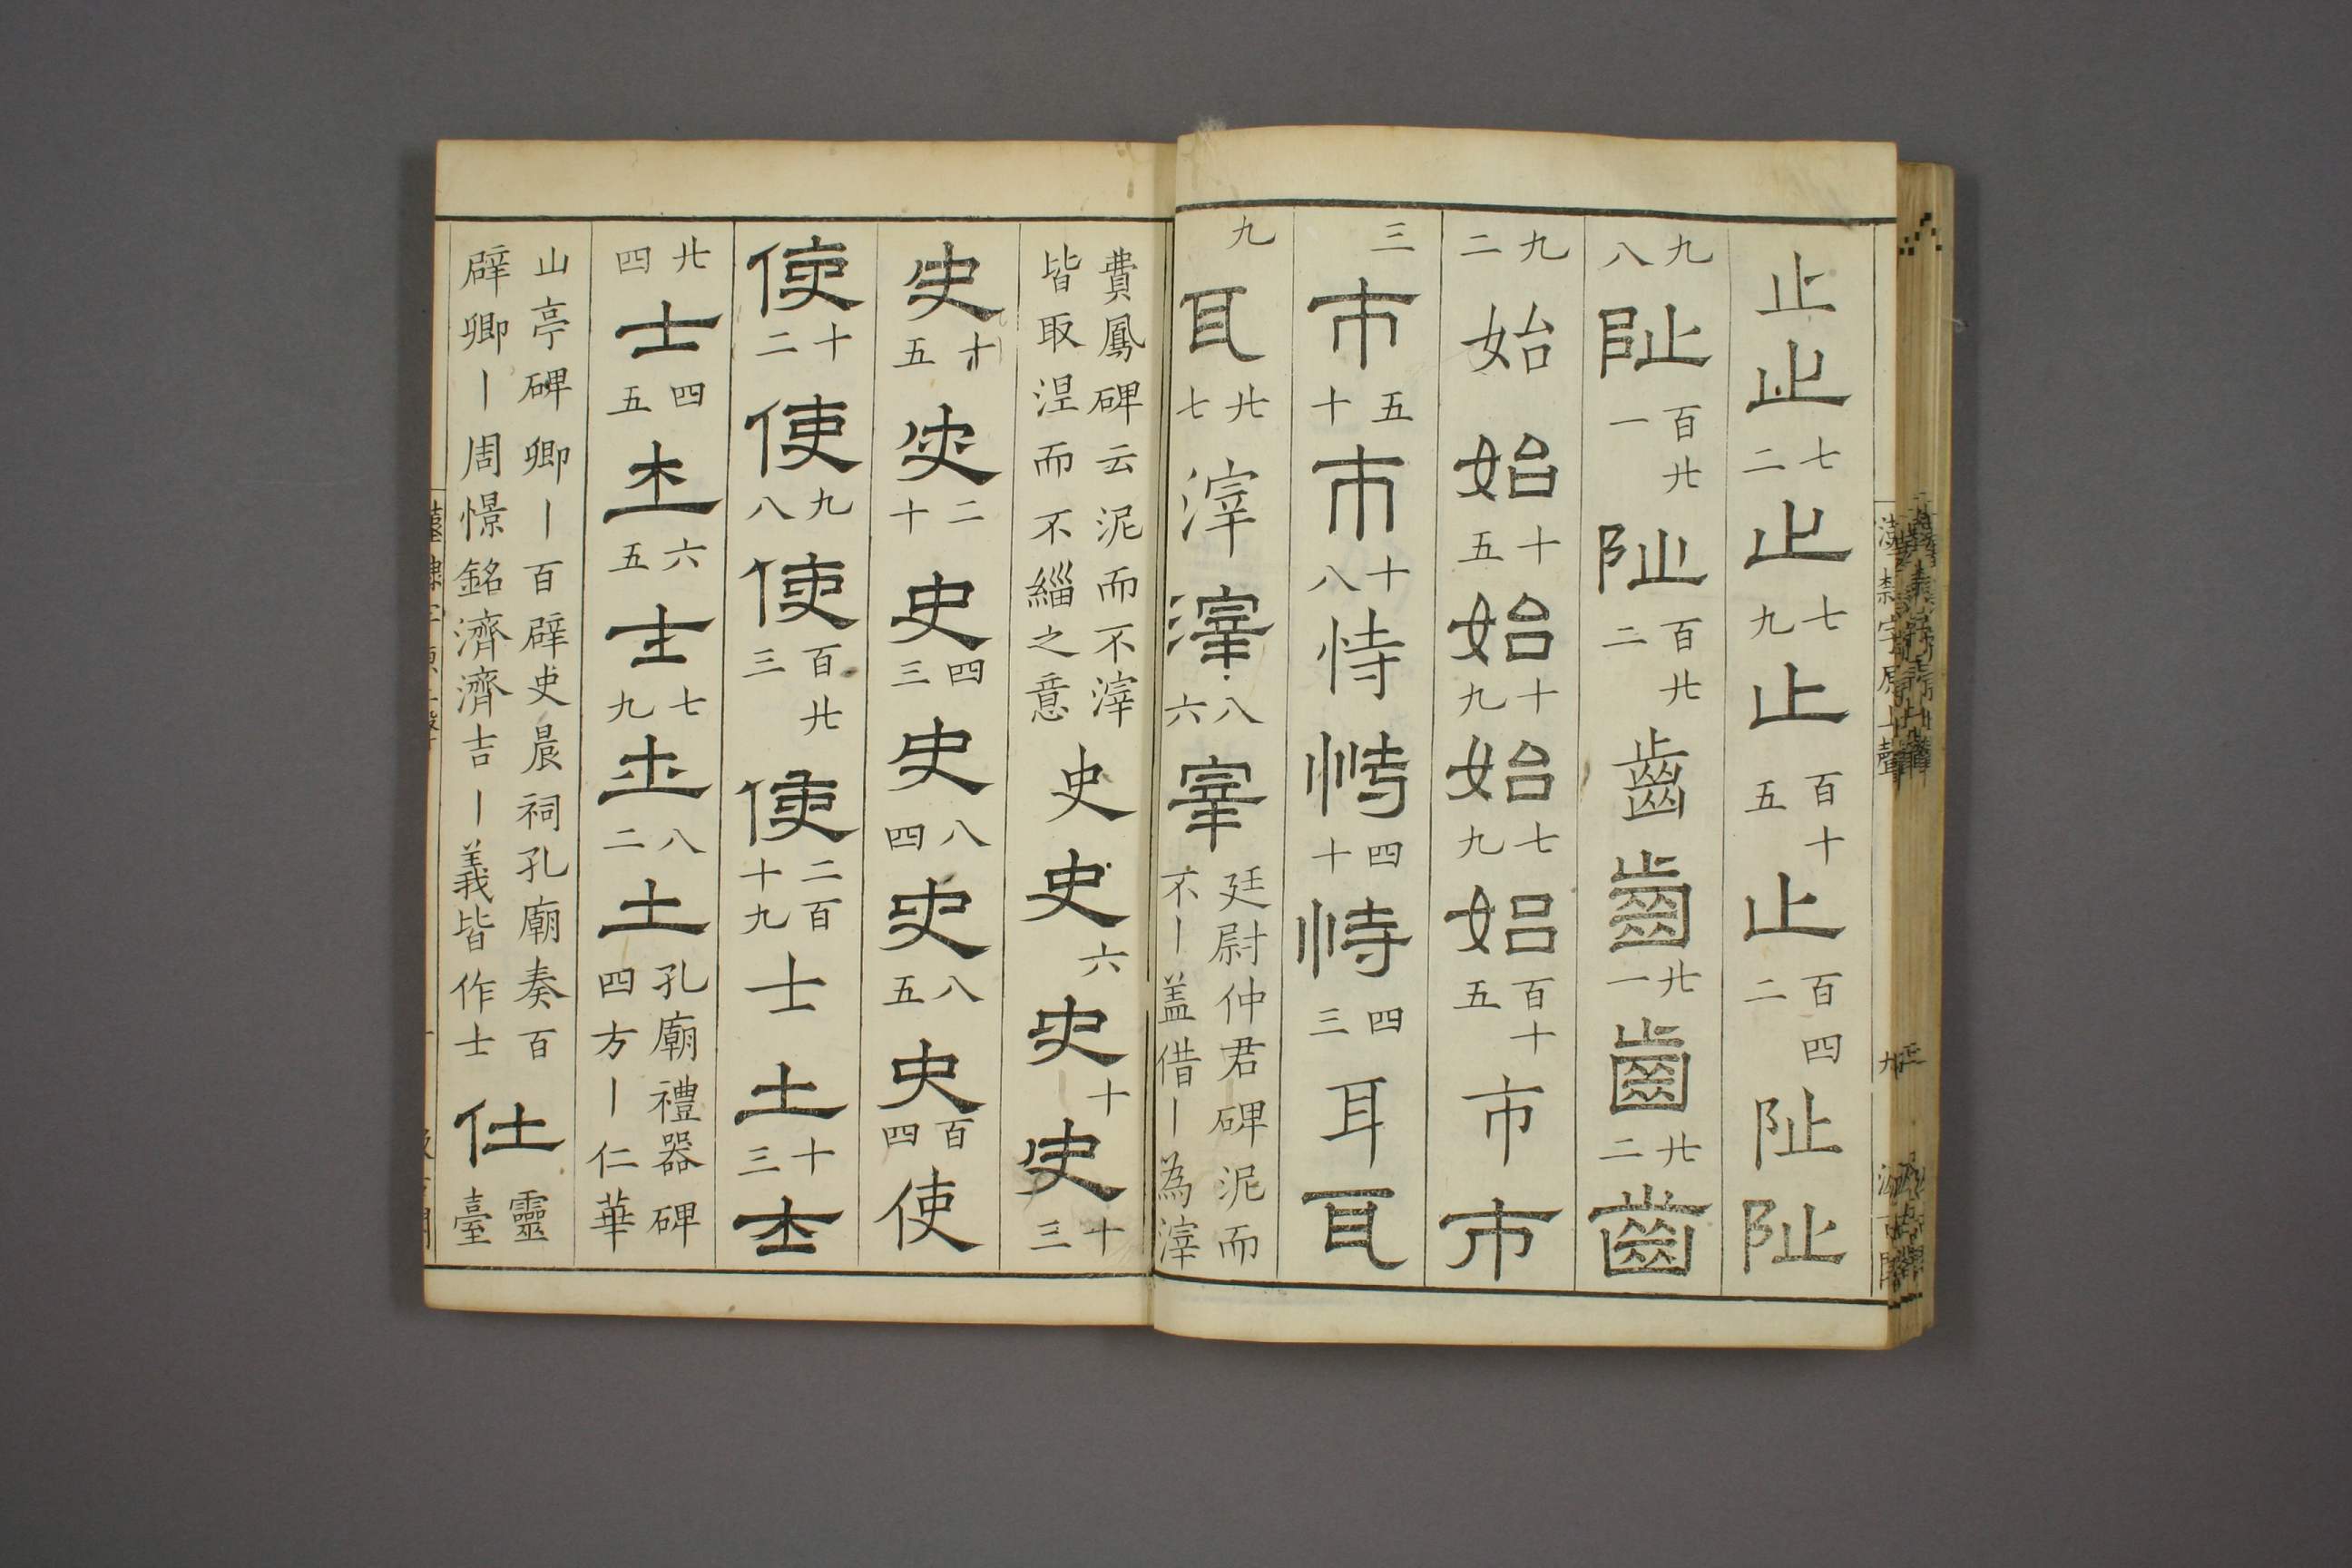 止止七二止七九止百十五止百四二阯阯
九八阯百廿一阯百廿二齒齒廿一齒廿二齒
九二始始十五始十九始七九始百十五市市
三市五十市十八恃恃四十恃四三耳耳
九耳廿七滓滓八六宰廷尉仲君碑泥而不〡盖借〡為滓
費鳳碑云泥而不滓皆取涅而不緇之意史史六史十史十三
史十五史二十史四三史八四史八五史百四使
使十二使九八使百廿三使二百十九士士十三士
廿四士四五士六五士七九士八二士孔廟禮器碑四方〡仁華
山亭碑卿〡百辟史晨祠孔廟奏百辟卿〡周憬銘濟濟吉〡義皆作士仕靈臺